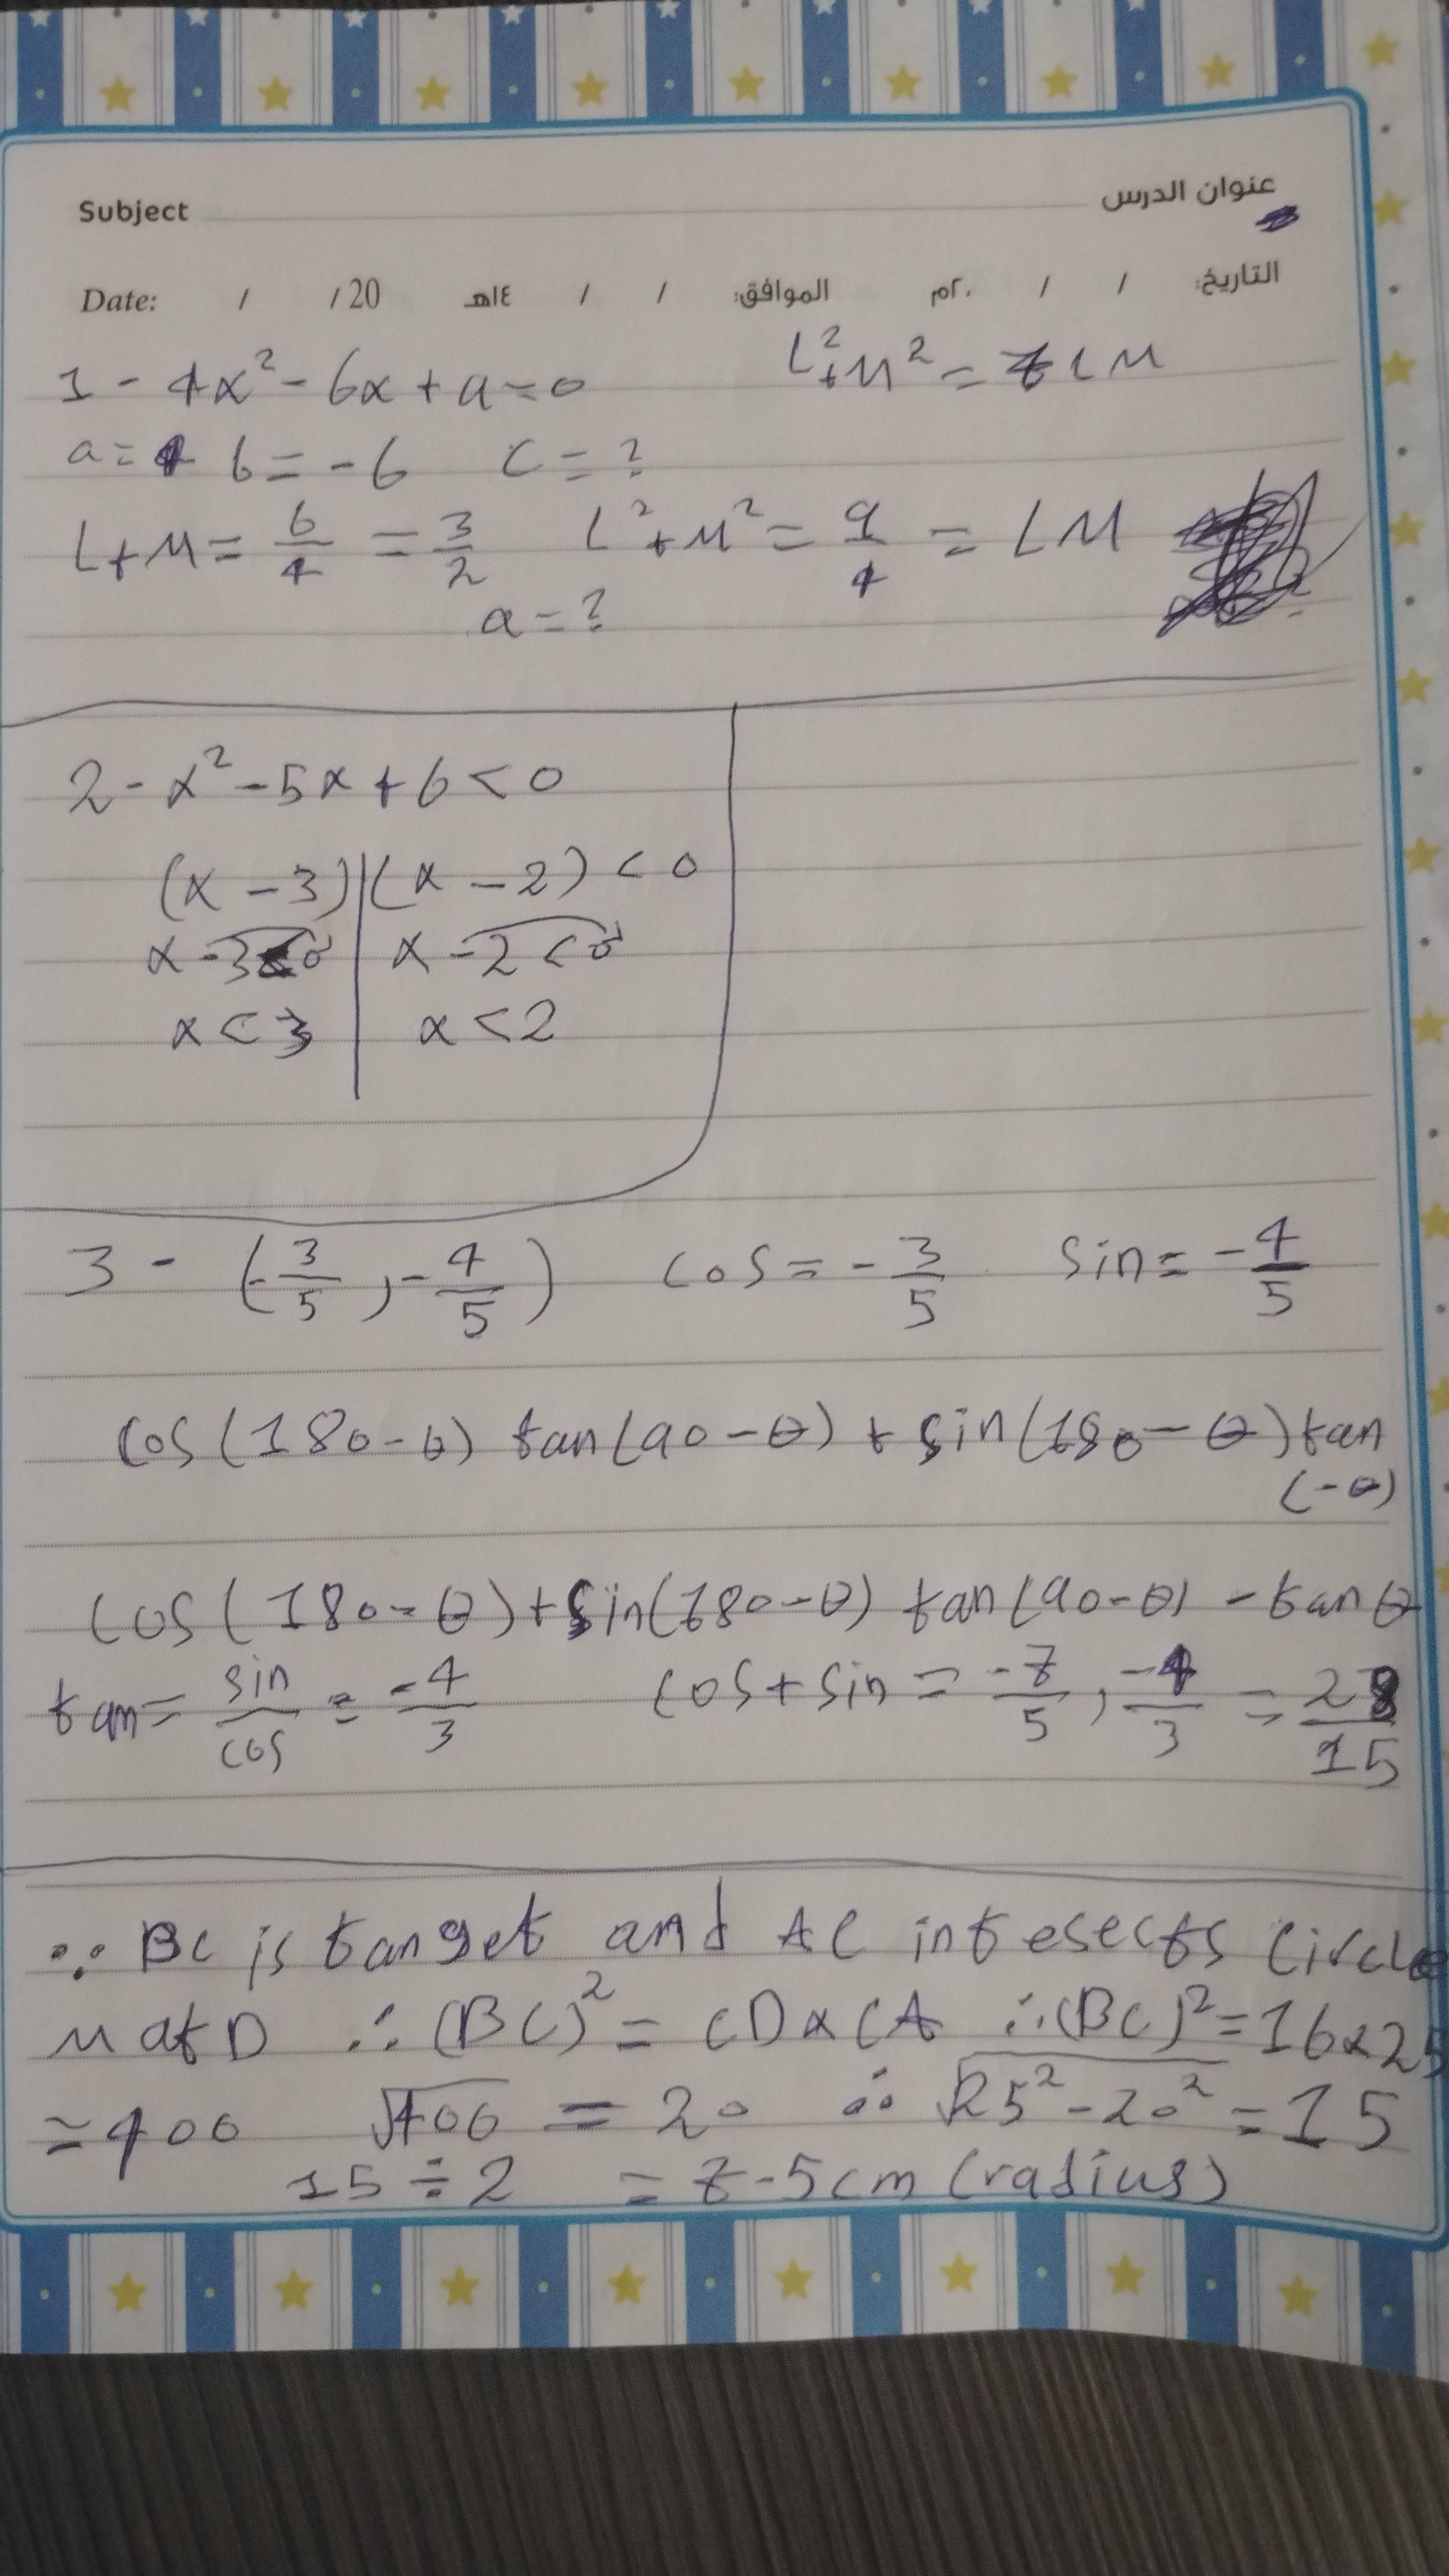 Subject عنوان الدرس
Date: / / 20 ١٤هـ / / الموافق: ٢٠م / / التاريخ:
1 - 4x² - 6x + a = 0 L² + M² = 7LM
a = 4 b = -6 c = ?
L + M = 6/4 = 3/2 L² + M² = 9/4 = LM
a = ?
2 - x² - 5x + 6 < 0
(x - 3) | (x - 2) < 0
x - 3 < 0 | x - 2 < 0
x < 3 | x < 2
3 - (-3/5, -4/5) cos = -3/5 sin = -4/5
cos(180-θ) tan(90-θ) + sin(180-θ) tan
(-θ)
cos(180-θ) + sin(180-θ) tan(90-θ) - tanθ
tan = sin/cos = -4/3 cos + sin = -7/5, -4/3 = 28/15
∵ BC is tanget and AC intesects circle
M at D ∴ (BC)² = CD x CA ∴ (BC)² = 16x25
= 400 √400 = 20 ∴ √25² - 20² = 15
15 ÷ 2 = 7-5cm (radius)